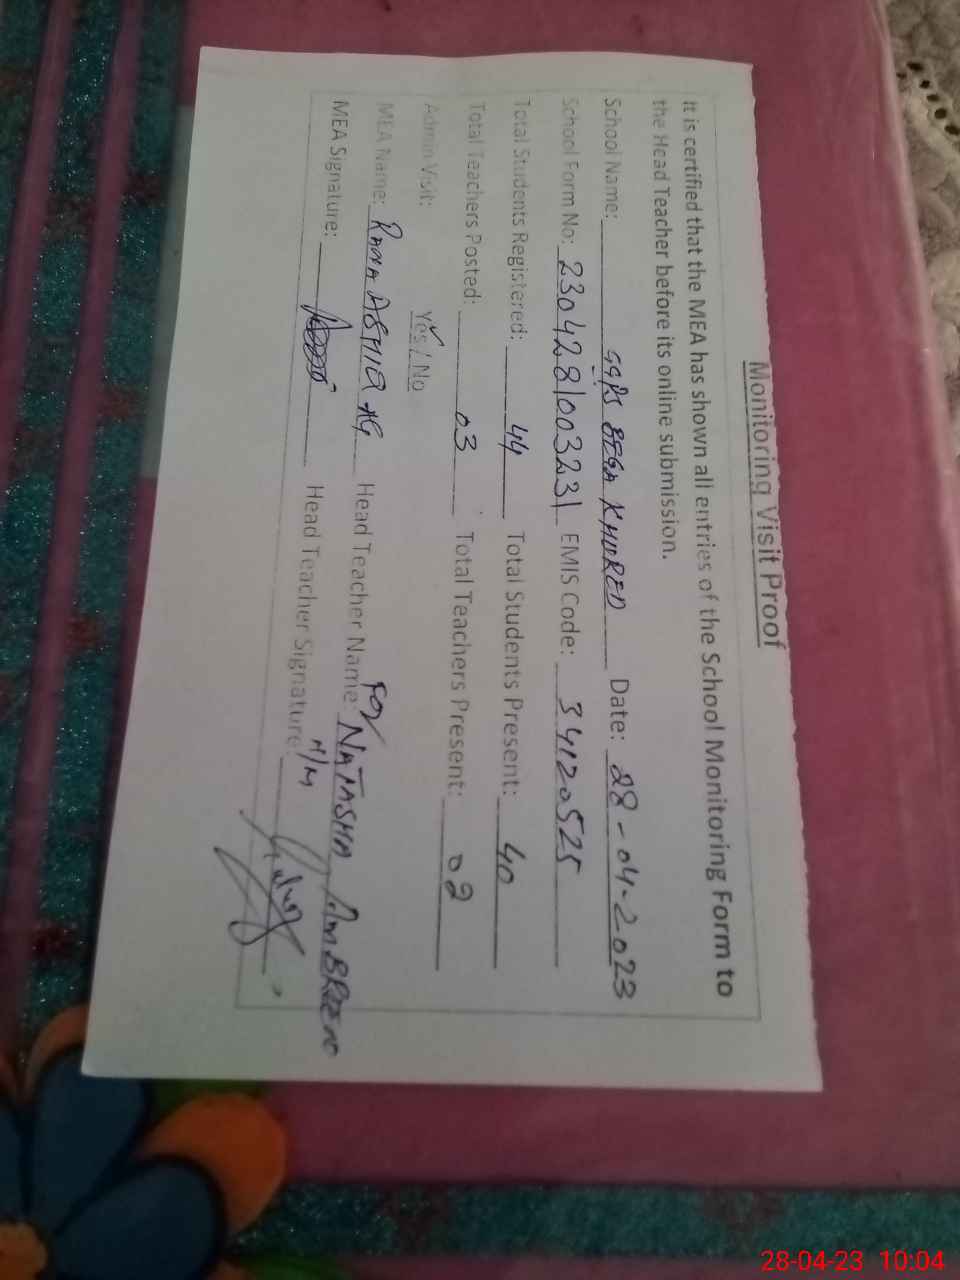 Monitoring Visit Proof
It is certified that the MEA has shown all entries of the School Monitoring Form to
the Head Teacher before its online submission.
School Name: GGPS BEGA KHURED Date: 28-04-2023
School Form No: 2304281003231 EMIS Code: 34120525
Total Students Registered: 44 Total Students Present: 40
Total Teachers Posted: 03 Total Teachers Present: 02
Admin Visit: Yes / No
MEA Name: RANA ASHIQ Head Teacher Name: For NATASHA AMBREEN
MEA Signature: Head Teacher Signature:
28-04-23 10:04